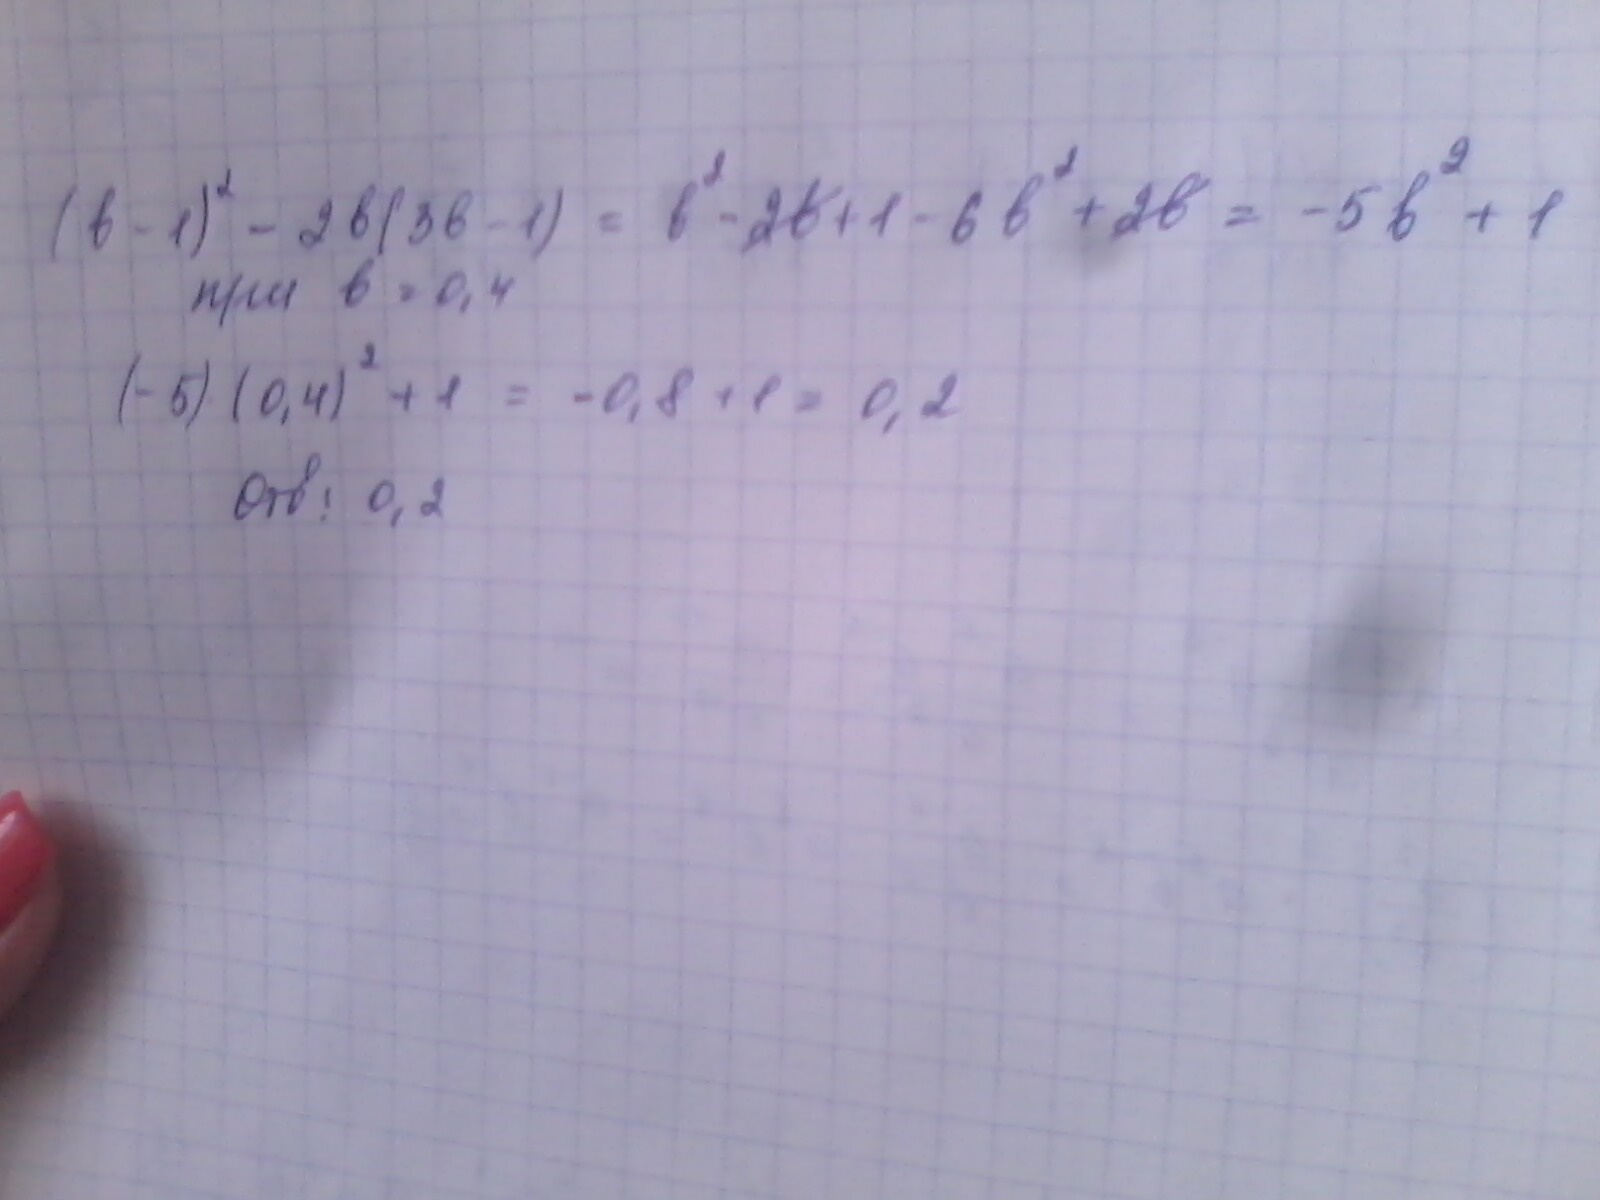 (b - 1)² - 2b(3b - 1) = b² - 2b + 1 - 6b² + 2b = -5b² + 1
при b = 0,4
(-5) · (0,4)² + 1 = -0,8 + 1 = 0,2
Отв: 0,2